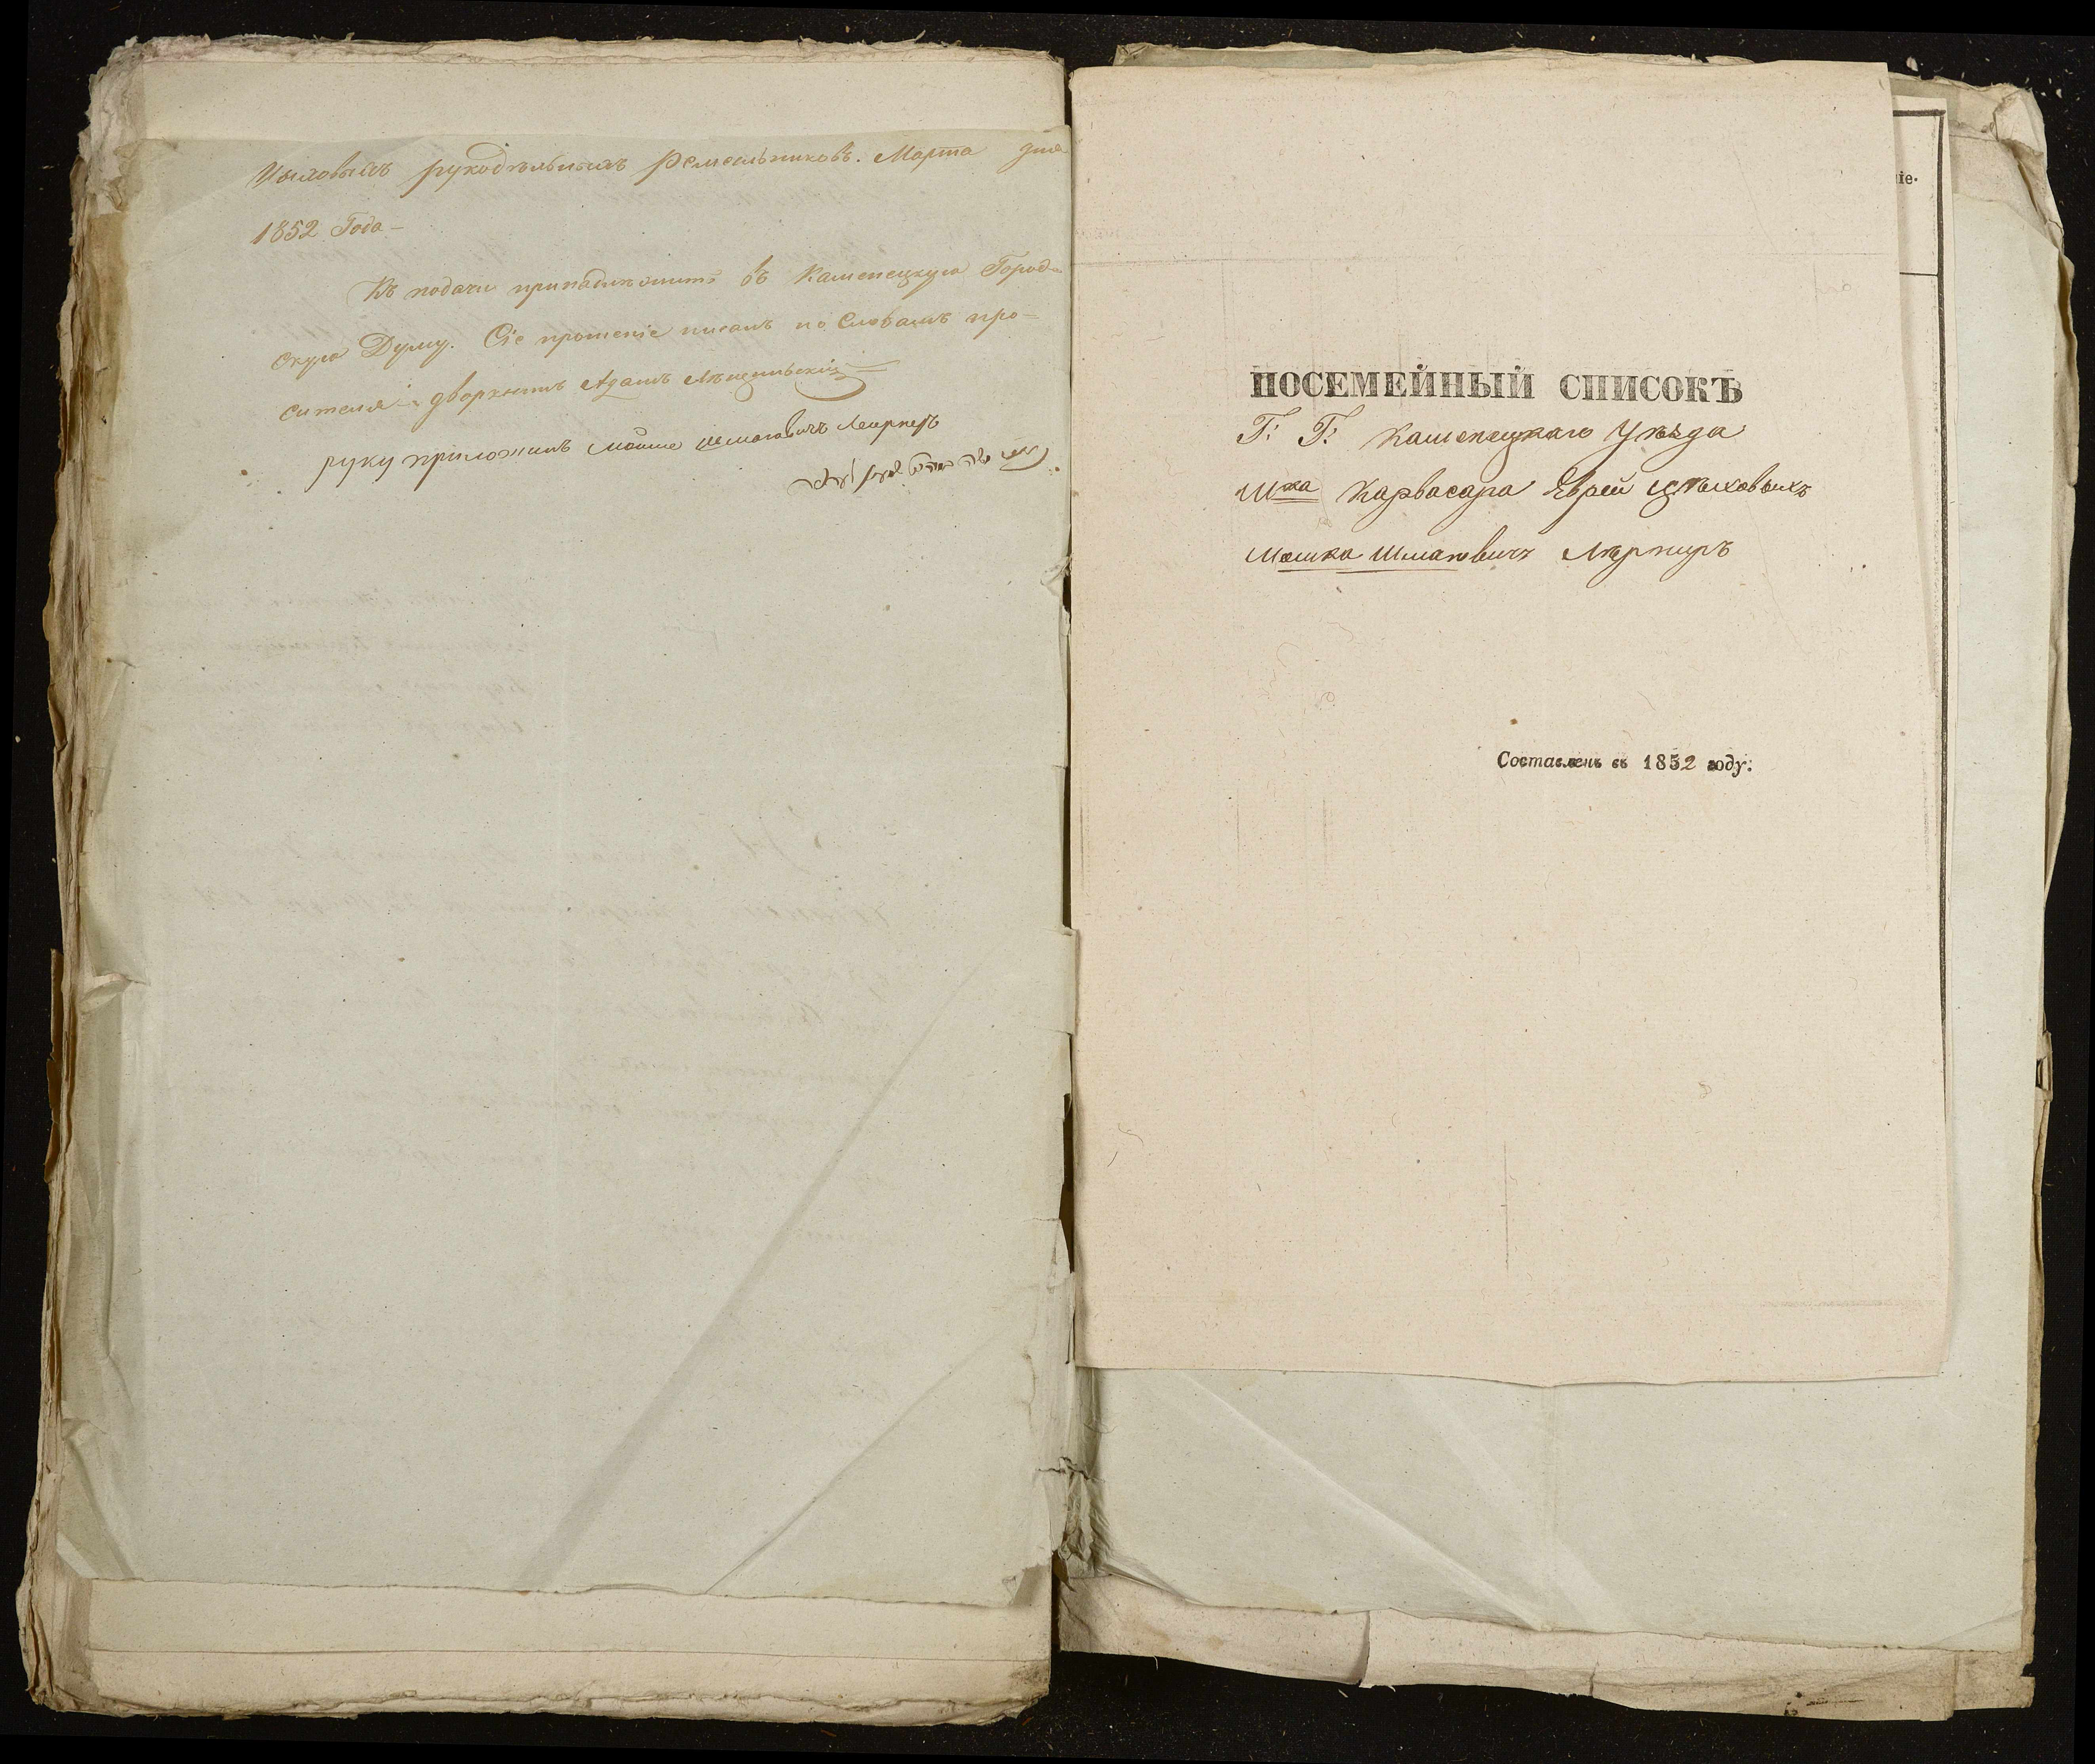 цыховыхъ рукодѣльныхъ Ремесльниковъ. Марта дня
1852 Года —
Къ подачи принадлежитъ въ Каменецкую Город-
скую Думу. Сіе прошеніе писалъ по Словамъ про=
сителя дворянинъ Адамъ
руку приложилъ Мойше Шмаювичъ Лернеръ
ПОСЕМЕЙНЫЙ СПИСОКЪ
Г: Г: Каменецкаго Уѣзда
М-ка Карвасара Еврей Цѣховыхъ
Мошка Шмаювичъ Лѣрниръ
Составленъ въ 1852 году:
ніе-